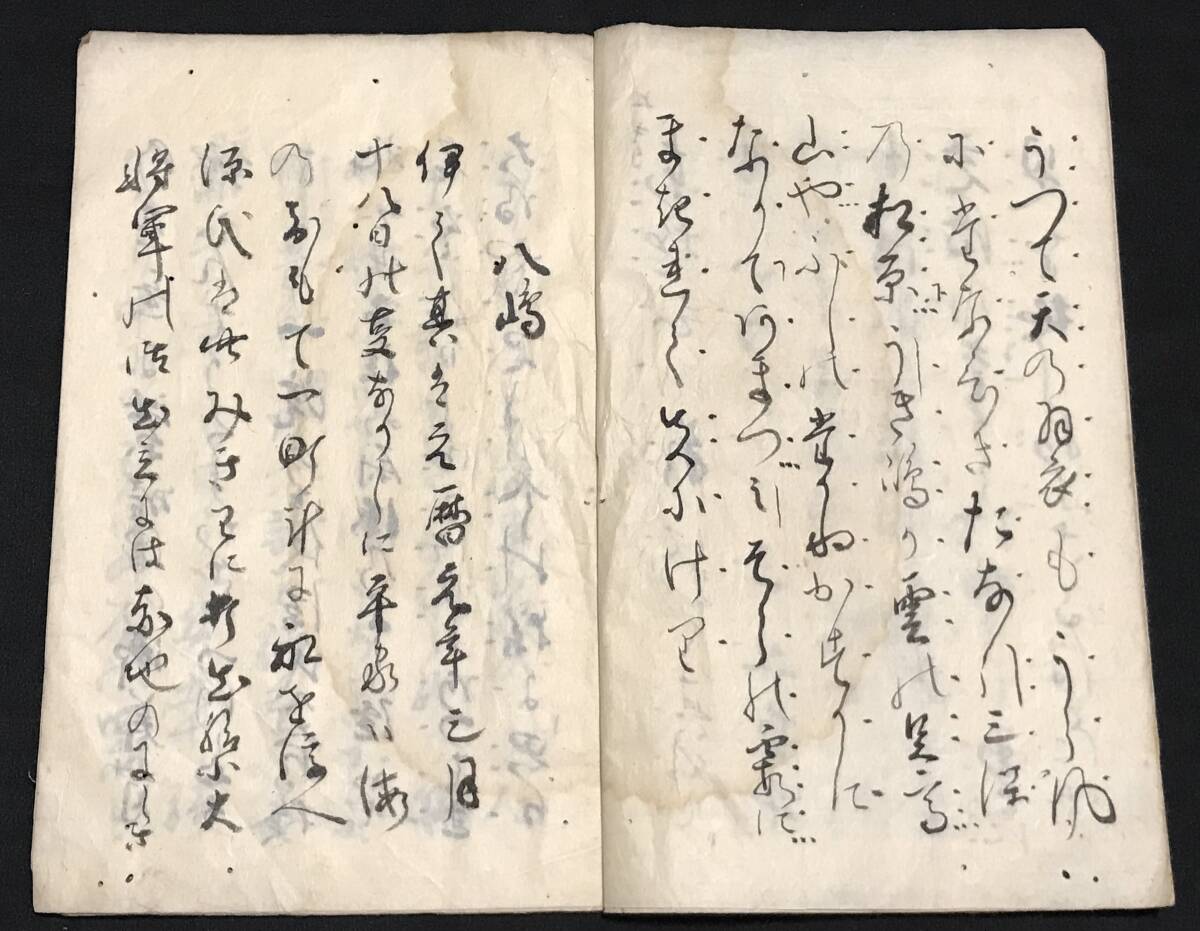 うつて天の羽衣もうら風
にたなびきたなひく三保
の松原うき嶋か雲の足高
山やふじの高ねかすかに
なりてあまつみそらの霞に
まきれて失にけり
八嶋
いて其比は元暦元年三月
十八日の事なりしに平家ハ海
のおもて一町計に舩をうかへ
源氏は此みきはに打出給ふ大
将軍の御出立にはあか地のにしき